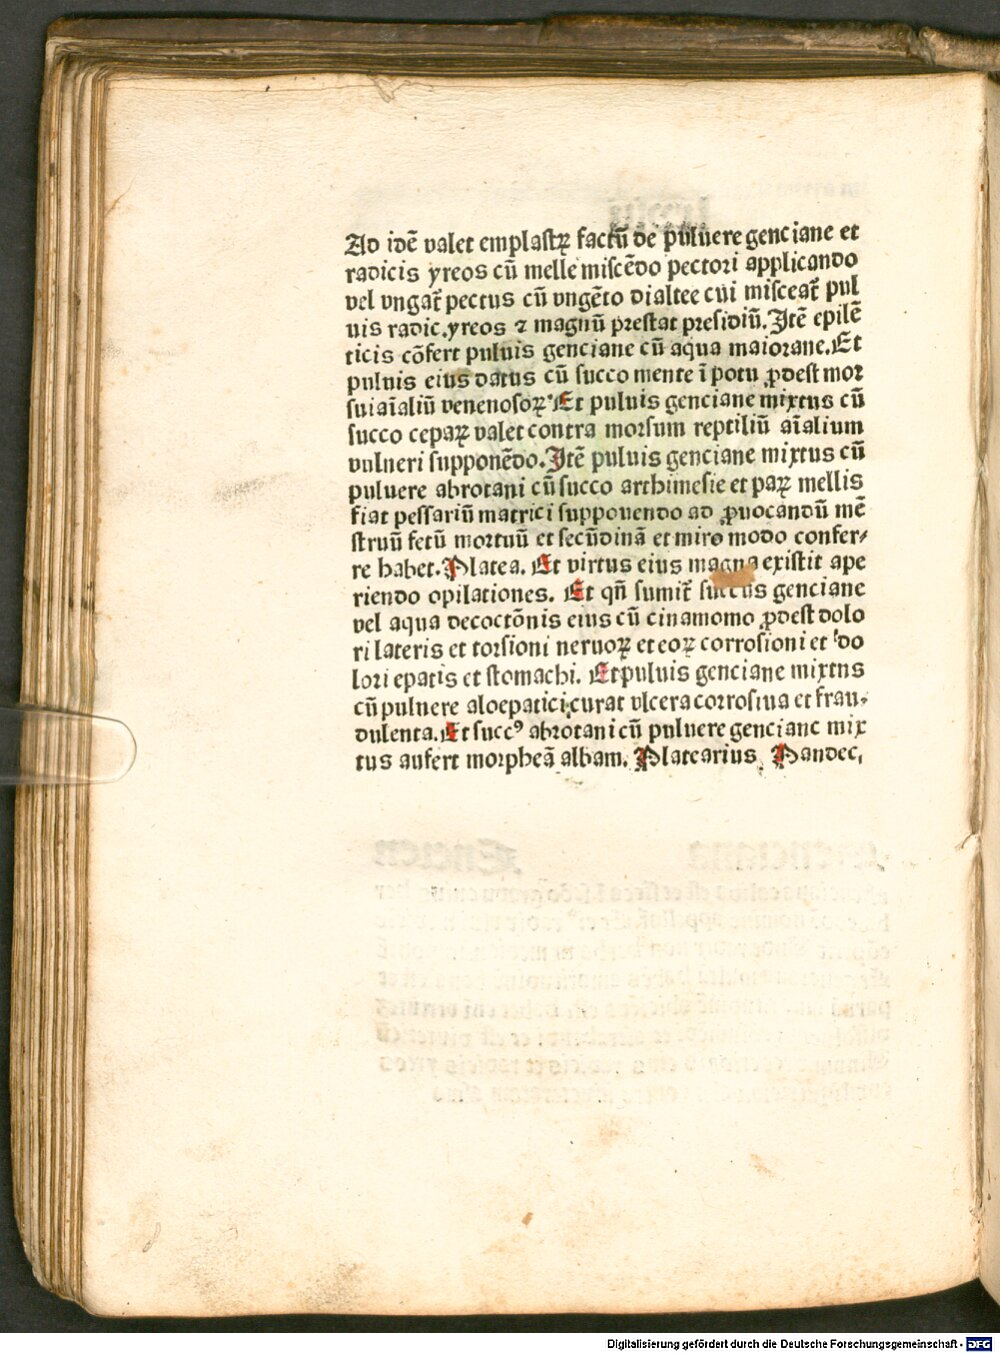 Ad idē valet emplastꝝ factū de puluere genciane et
radicis yreos cū melle miscēdo pectori applicando
vel vngat᷑ pectus cū vngēto dialtee cui misceat᷑ pul
uis radic.yreos ⁊ magnū prestat presidiū.Itē epilē
ticis cōfert puluis genciane cū aqua maiorane.Et
puluis eius datus cū succo mente ī potu ꝓdest mor
sui aīaliū venenosoꝝ.Et puluis genciane mixtus cū
succo cepaꝝ valet contra morsum reptiliū aīalium
vulneri supponēdo.Itē puluis genciane mixtus cū
puluere abrotani cū succo arthimesie et paꝝ mellis
fiat pessariū matrici supponendo ad ꝓuocandū mē
struū fetū mortuū et secūdinā et miro modo confer-
re habet.Platea. Et virtus eius magna existit ape
riendo opilationes. Et qn̄ sumit᷑ succus genciane
vel aqua decoctōnis eius cū cinamomo ꝓdest dolo
ri lateris et torsioni neruoꝝ et eoꝝ corrosioni et do
lori epatis et stomachi. Et puluis genciane mixtus
cū puluere aloepatici curat vlcera corrosiua et frau-
dulenta.Et succꝰ abrotani cū puluere genciane mix
tus aufert morpheā albam. Platearius. Pandec.
Digitalisierung gefördert durch die Deutsche Forschungsgemeinschaft - DFG